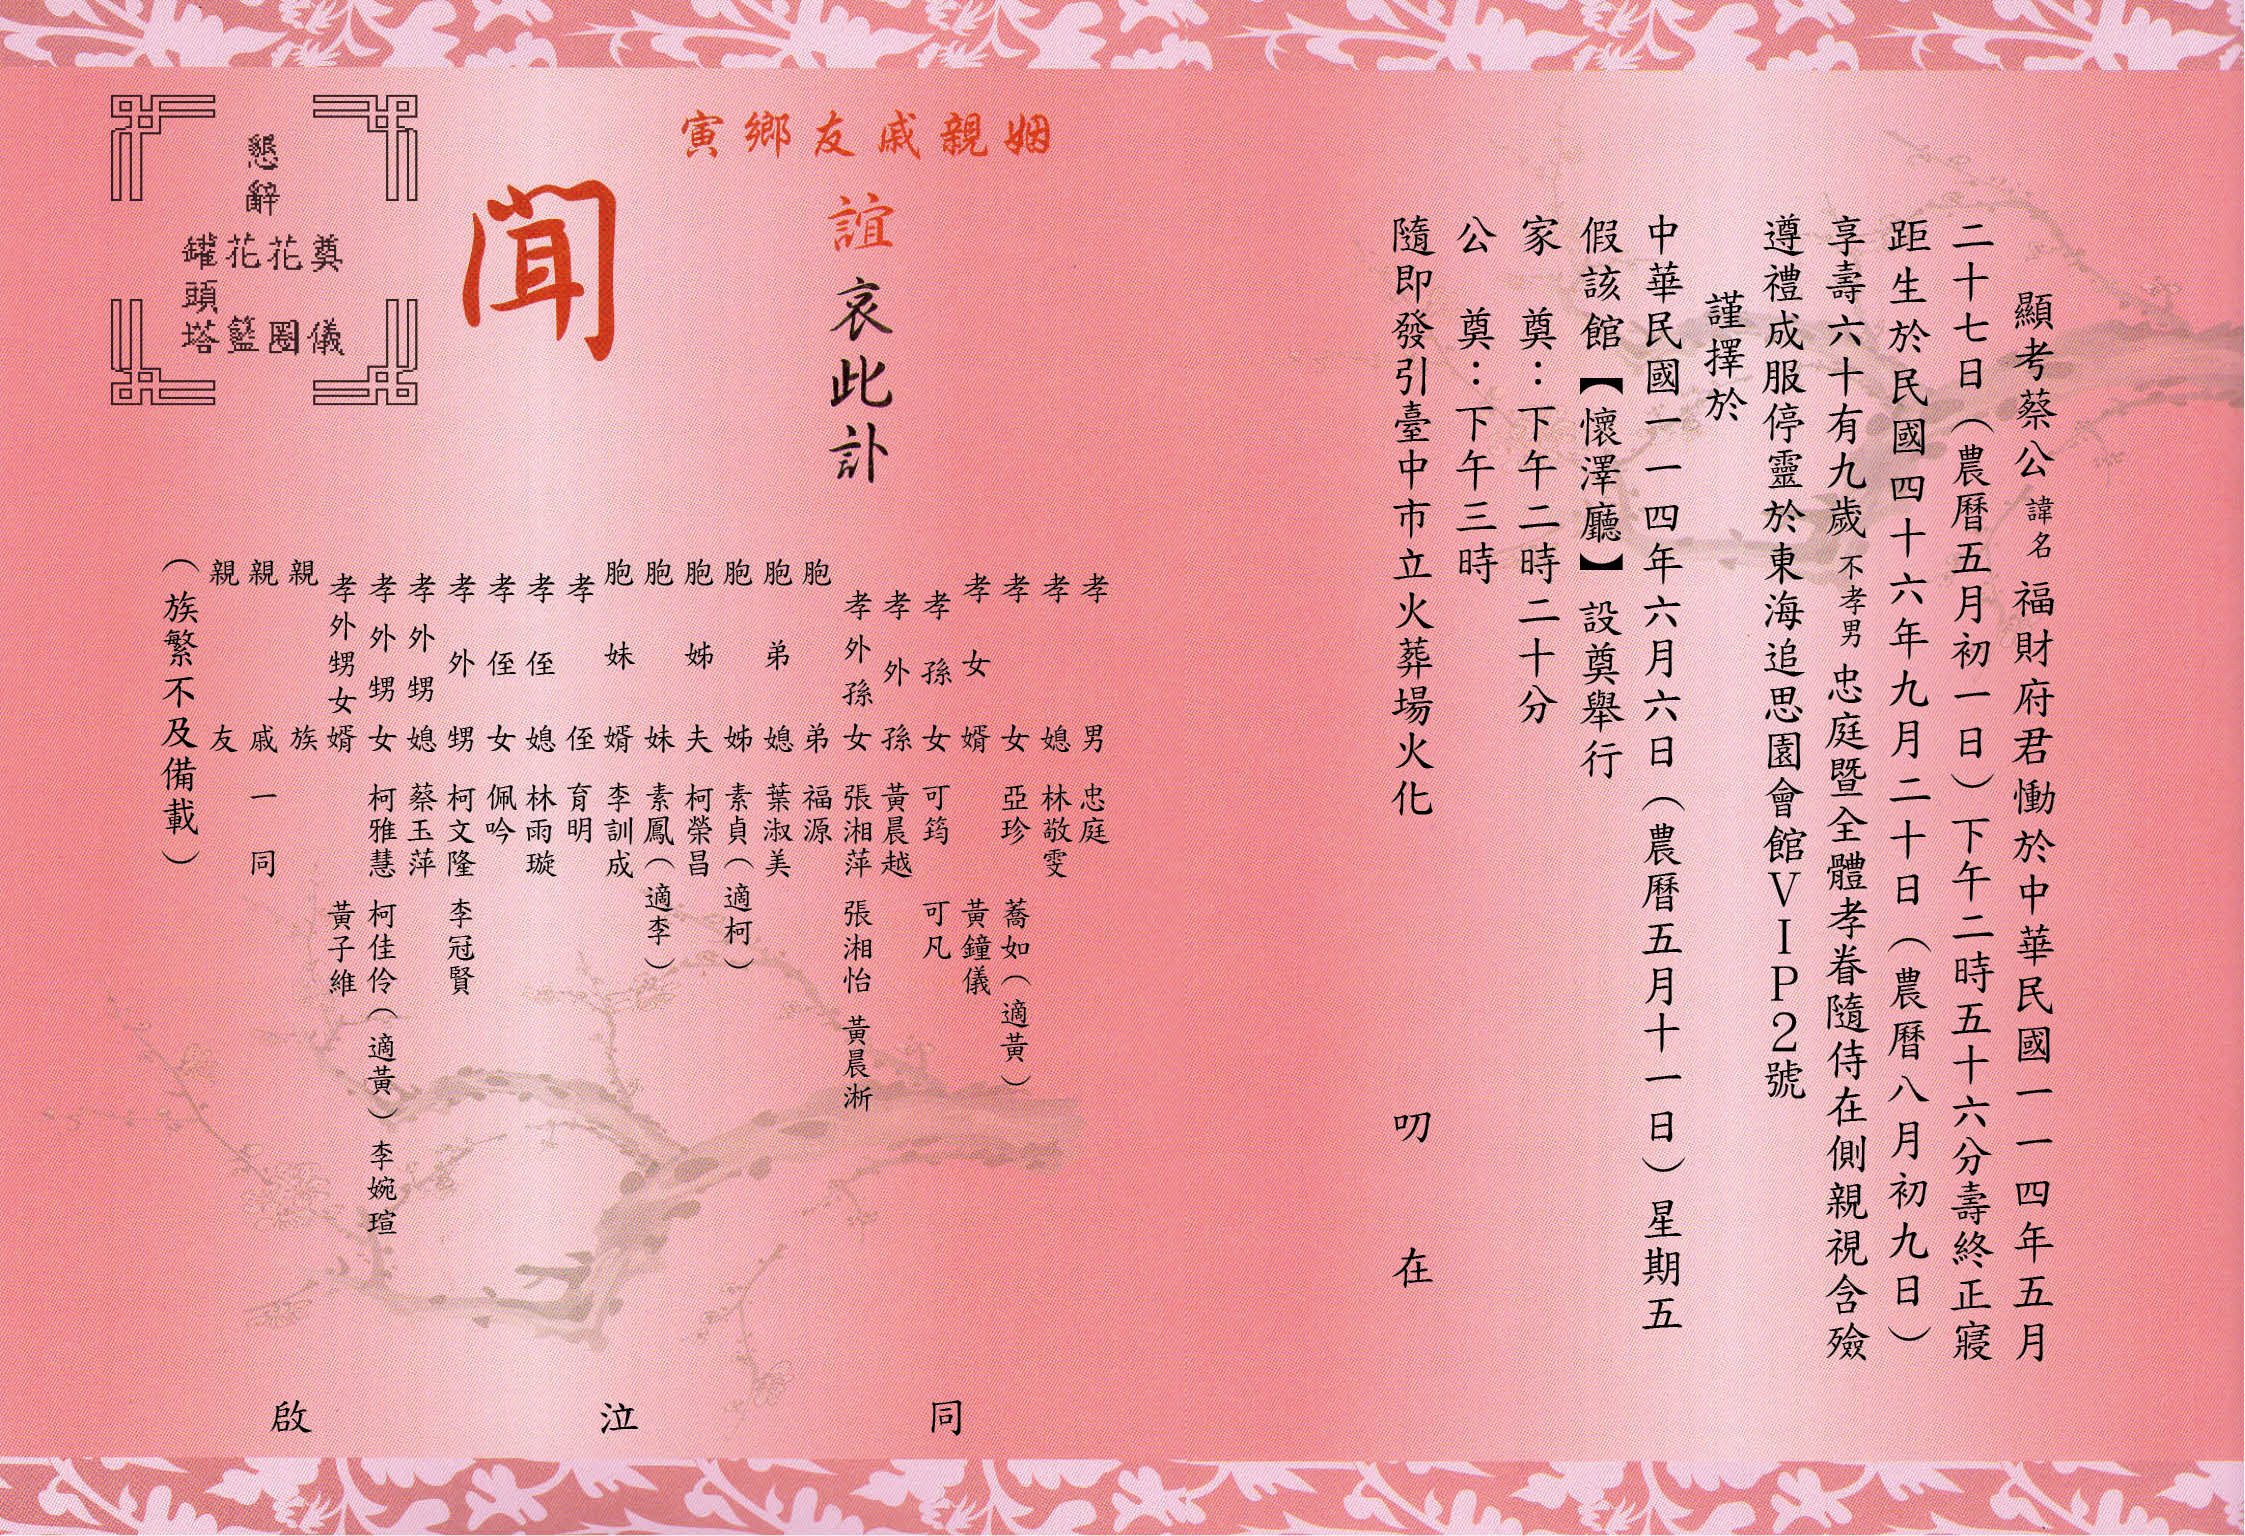 顯考蔡公諱名福財府君慟於中華民國一一四年五月
二十七日（農曆五月初一日）下午二時五十六分壽終正寢
距生於民國四十六年九月二十日（農曆八月初九日）
享壽六十有九歲不孝男忠庭暨全體孝眷隨侍在側親視含殮
遵禮成服停靈於東海追思園會館ＶＩＰ２號
謹擇於
中華民國一一四年六月六日（農曆五月十一日）星期五
假該館【懷澤廳】設奠舉行
家奠：下午二時二十分
公奠：下午三時
隨即發引臺中市立火葬場火化
叨在
姻親戚友鄉寅
誼哀此訃
聞
懇辭
奠儀
花圈
花籃
罐頭塔
孝男 忠庭
孝媳 林敬雯
孝女 亞珍 蕎如（適黃）
孝女婿 黃鐘儀
孝孫女 可筠 可凡
孝外孫 黃晨越
孝外孫女 張湘萍 張湘怡 黃晨淅
胞弟 福源
胞弟媳 葉淑美
胞姊 素貞（適柯）
胞姊夫 柯榮昌
胞妹 素鳳（適李）
胞妹婿 李訓成
孝侄 育明
孝侄媳 林雨璇
孝侄女 佩吟
孝外甥 柯文隆 李冠賢
孝外甥媳 蔡玉萍
孝外甥女 柯雅慧 柯佳伶（適黃）李婉瑄
孝外甥女婿 黃子維
親族
親戚一同
親友
（族繁不及備載）
同泣啟